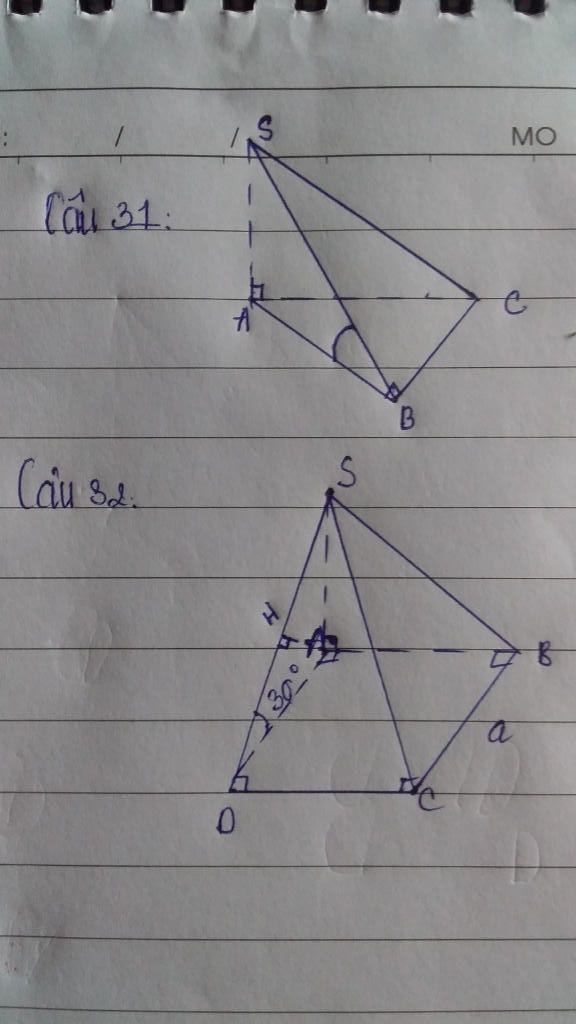 : / / MO
S
Câu 31:
A
C
B
Câu 32:
S
H
A
B
30°
a
C
D